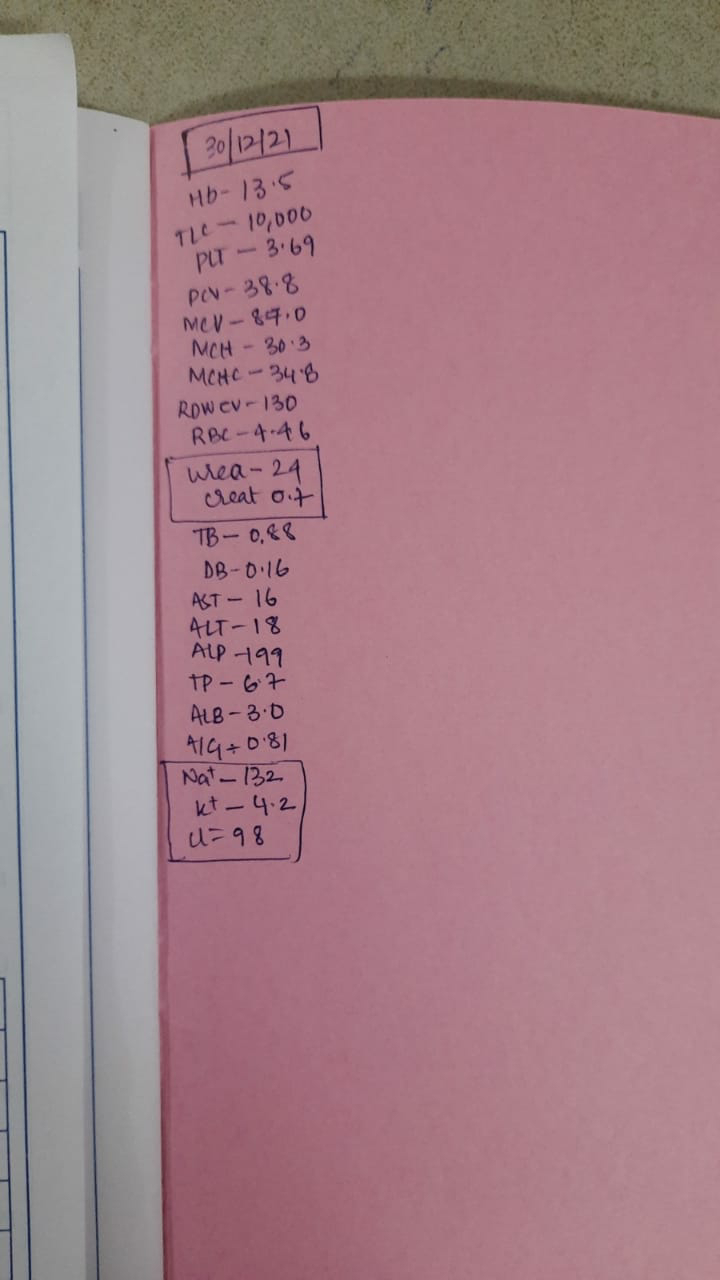 30/12/21
Hb- 13.5
TLC - 10,000
PLT - 3.69
PCV - 38.8
MCV - 87.0
MCH - 30.3
MCHC - 34.8
RDW CV - 130
RBC - 4.46
urea - 24
creat 0.7
TB - 0.88
DB - 0.16
AST - 16
ALT - 18
ALP - 199
TP - 6.7
ALB - 3.0
A/G ÷ 0.81
Na+ - 132
K+ - 4.2
Cl = 98